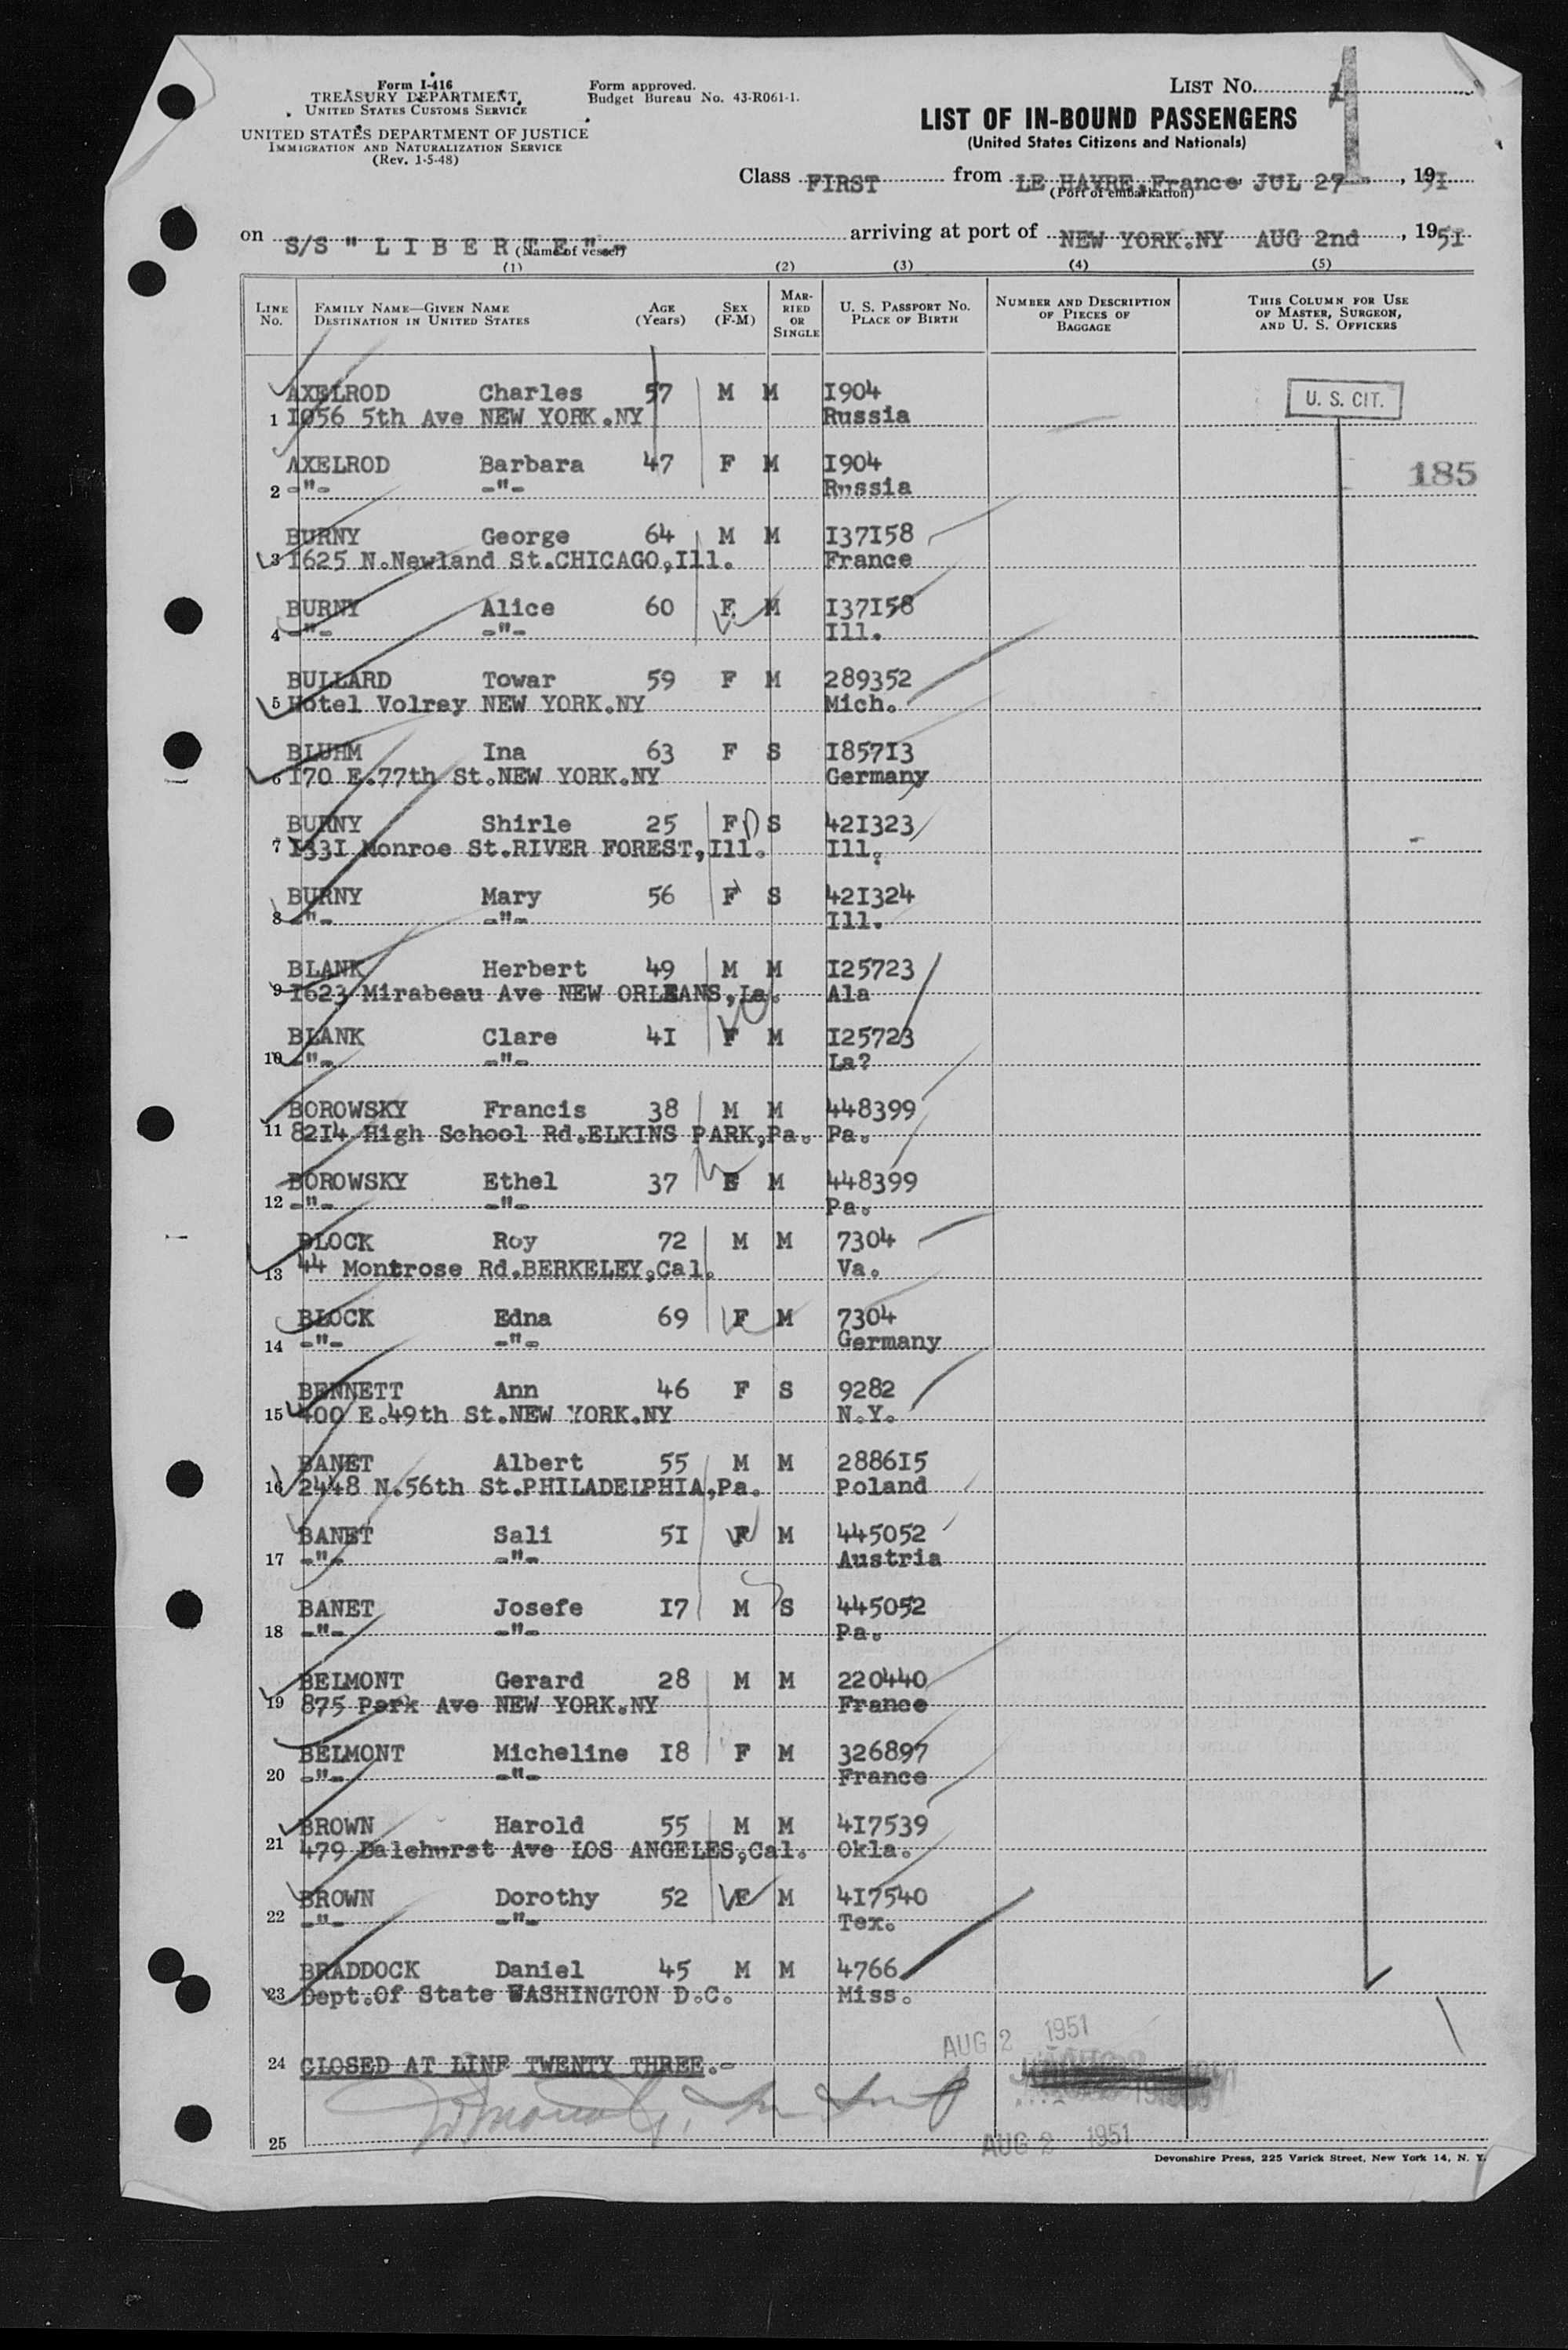 Form I-416
TREASURY DEPARTMENT
UNITED STATES CUSTOMS SERVICE
UNITED STATES DEPARTMENT OF JUSTICE
IMMIGRATION AND NATURALIZATION SERVICE
(Rev. 1-5-48)
Form approved.
Budget Bureau No. 43-R061-1.
LIST NO. 1
1
LIST OF IN-BOUND PASSENGERS
(United States Citizens and Nationals)
Class FIRST from LE HAVRE,France JUL 27, 195I
(Port of embarkation)
on S/S " L I B E R T E " arriving at port of NEW YORK.NY AUG 2nd, 195I
(Name of vessel)
(1) (2) (3) (4) (5)
LINE No. FAMILY NAME—GIVEN NAME DESTINATION IN UNITED STATES AGE (Years) SEX (F-M) MARRIED OR SINGLE U. S. PASSPORT NO. PLACE OF BIRTH NUMBER AND DESCRIPTION OF PIECES OF BAGGAGE THIS COLUMN FOR USE OF MASTER, SURGEON, AND U. S. OFFICERS
AXELROD Charles 57 M M I904 U. S. CIT.
1 I056 5th Ave NEW YORK.NY Russia
AXELROD Barbara 47 F M I904 185
2 -"- -"- Russia
BURNY George 64 M M I37I58
3 I625 N.Newland St.CHICAGO,Ill. France
BURNY Alice 60 F M I37I58
4 -"- -"- Ill.
BULLARD Towar 59 F M 289352
5 Hotel Volrey NEW YORK.NY Mich.
BLUHM Ina 63 F S I857I3
6 I70 E.77th St.NEW YORK.NY Germany
BURNY Shirle 25 F S 42I323
7 I33I Monroe St.RIVER FOREST,Ill. Ill.
BURNY Mary 56 F S 42I324
8 -"- -"- Ill.
BLANK Herbert 49 M M I25723
9 I623 Mirabeau Ave NEW ORLEANS,La. Ala
BLANK Clare 4I F M I25723
10 -"- -"- La?
BOROWSKY Francis 38 M M 448399
11 82I4 High School Rd.ELKINS PARK,Pa. Pa.
BOROWSKY Ethel 37 F M 448399
12 -"- -"- Pa.
BLOCK Roy 72 M M 7304
13 44 Montrose Rd.BERKELEY,Cal. Va.
BLOCK Edna 69 F M 7304
14 -"- -"- Germany
BENNETT Ann 46 F S 9282
15 400 E.49th St.NEW YORK.NY N.Y.
BANET Albert 55 M M 2886I5
16 2448 N.56th St.PHILADELPHIA,Pa. Poland
BANET Sali 5I F M 445052
17 -"- -"- Austria
BANET Josefe I7 M S 445052
18 -"- -"- Pa.
BELMONT Gerard 28 M M 220440
19 875 Park Ave NEW YORK.NY France
BELMONT Micheline I8 F M 326897
20 -"- -"- France
BROWN Harold 55 M M 4I7539
21 479 Dalehurst Ave LOS ANGELES,Cal. Okla.
BROWN Dorothy 52 F M 4I7540
22 -"- -"- Tex.
BRADDOCK Daniel 45 M M 4766
23 Dept.Of State WASHINGTON D.C. Miss.
AUG 2 1951
24 CLOSED AT LINE TWENTY THREE.-
25
AUG 2 1951
Devonshire Press, 225 Varick Street, New York 14, N. Y.